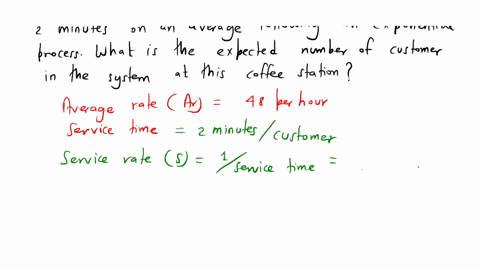 2 minutes on an average following an exponential
process. What is the expected number of customer
in the system at this coffee station?
Average rate (Ar) = 48 per hour
Service time = 2 minutes/customer
Service rate (S) = 1/service time =